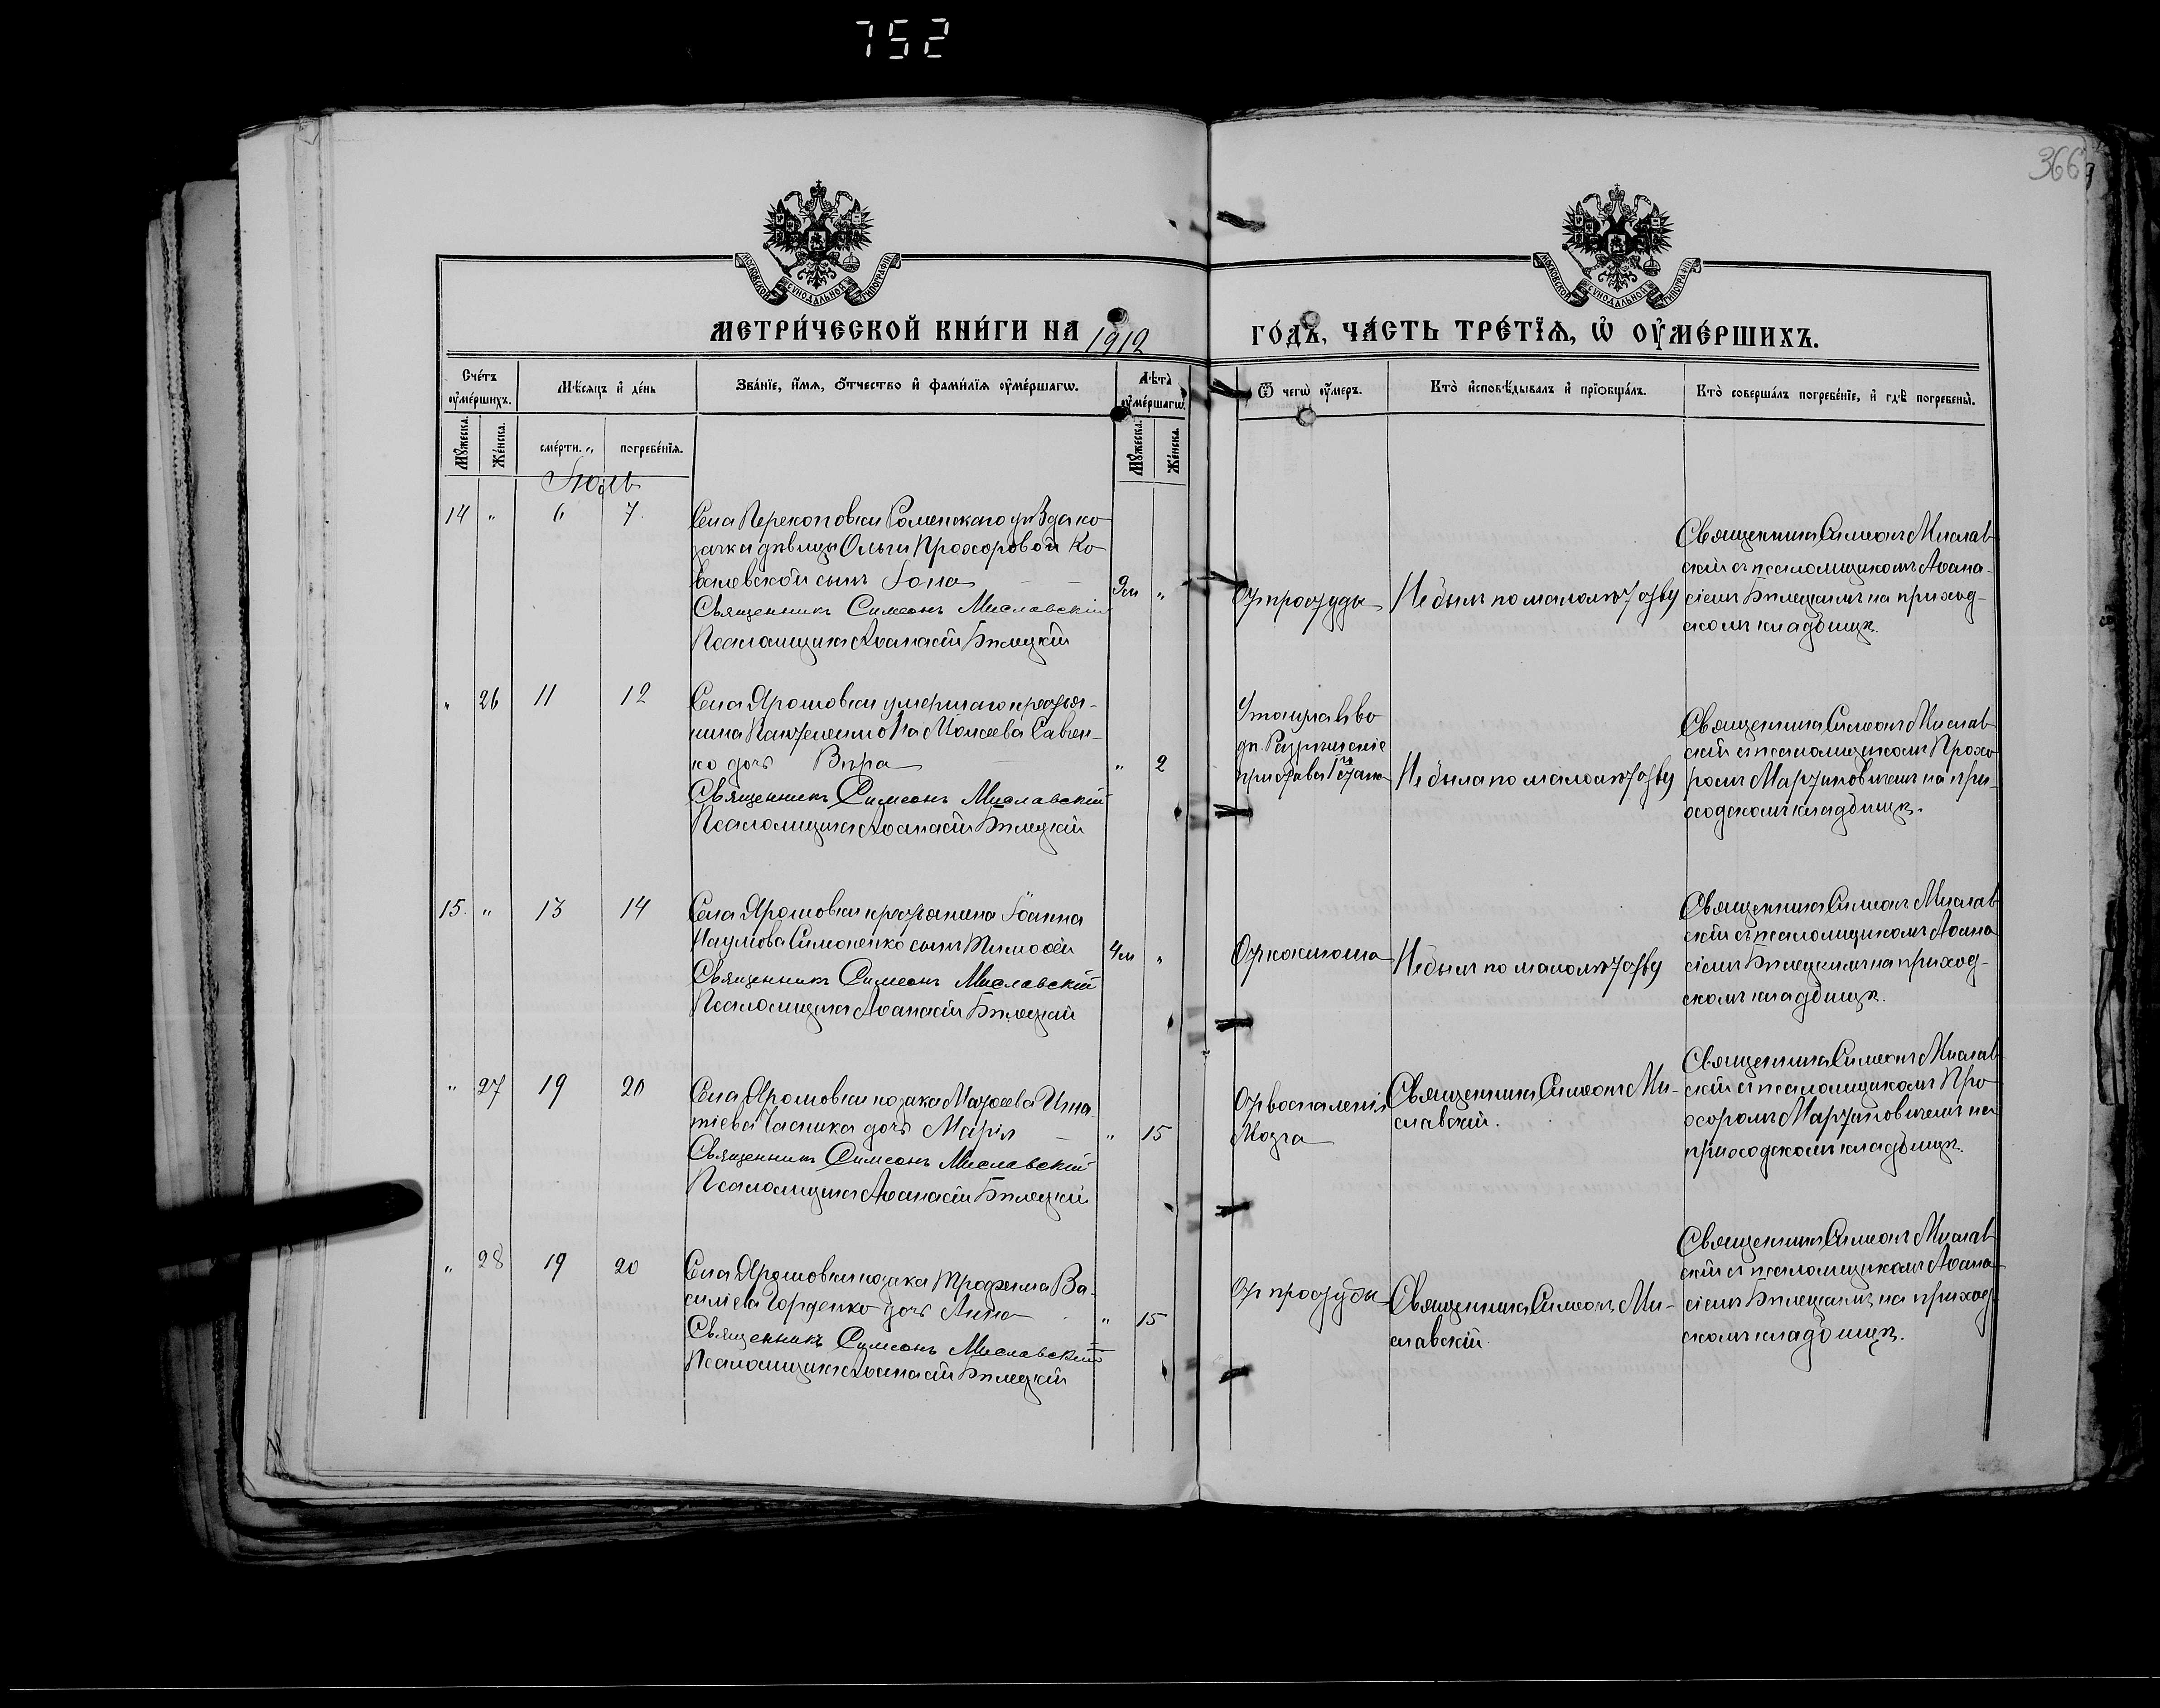 752
366
МОСКОВСКОЙ СУНОДАЛЬНОЙ ТИПОГРАФІИ
МОСКОВСКОЙ СУНОДАЛЬНОЙ ТИПОГРАФІИ
МЕТРИ́ЧЕСКОЙ КНИ́ГИ НА 1912 ГО́ДЪ, ЧА́СТЬ ТРЕ́ТІѦ, Ѡ҆ ОУ҆МЕ́РШИХЪ.
Сче́тъ оу҆ме́ршихъ.
Мѣ́сяцъ и҆ де́нь
Зва́нїе, и҆́мя, ѻ҆́тчество и҆ фами́лїя оу҆ме́ршагѡ.
Лѣ́та оу҆ме́ршагѡ.
Ѿ чегѡ̀ оу҆́меръ.
Кто̀ и҆сповѣ́дывалъ и҆ прїѡбща́лъ.
Кто̀ соверша́лъ погребе́нїе, и҆ гдѣ̀ погребены̀.
Мꙋ́жеска.
Же́нска.
сме́рти.
погребе́нїя.
Мꙋ́жеска.
Же́нска.
Іюль
14 " 6 7
Села Перекоповки Роменскаго уѣзда ко
зачки дѣвицы Ольги Прохоровой Ко
валевской сынъ Іона
Священникъ Симеонъ Миславскій
Псаломщикъ Аѳанасій Бѣлецкій
9м "
От простуды
Не былъ по малолѣтству
Священникъ Симеонъ Мислав
скій съ псаломщикомъ Аѳана-
сіемъ Бѣлецкимъ на приход-
скомъ кладбищѣ.
" 26 11 12
Села Ярошовки умершаго крестья-
нина Пантелеимона Моисеева Савчен-
ко дочь Вѣра
Священникъ Симеонъ Миславскій
Псаломщикъ Аѳанасій Бѣлецкій
" 2
приставъ
Не была по малолѣтству
Священникъ Симеонъ Мислав
скій съ псаломщикомъ Прохо
ромъ Мартиновичемъ на при-
ходскомъ кладбищѣ.
15. " 13 14
Села Ярошовки крестьянина Іоанна
Наумова Симоненко сынъ Тимоѳей
Священникъ Симеонъ Миславскій
Псаломщикъ Аѳанасій Бѣлецкій
4м "
От коклюша
Не былъ по малолѣтству
Священникъ Симеонъ Мислав
скій съ псаломщикомъ Аѳана
сіемъ Бѣлецкимъ на приход-
скомъ кладбищѣ.
" 27 19 20
Села Ярошовки козака Матѳея Игна
тіева Часника дочь Марія
Священникъ Симеонъ Миславскій
Псаломщикъ Аѳанасій Бѣлецкій
" 15
От воспаленія
Мозга
Священникъ Симеонъ Ми-
славскій.
Священникъ Симеонъ Мислав
скій съ псаломщикомъ Про
хоромъ Мартиновичемъ на
приходскомъ кладбищѣ.
" 28 19 20
Села Ярошовки козака Трофима Ва-
силіева Гордѣнко дочь Анна
Священникъ Симеонъ Миславскій
Псаломщикъ Аѳанасій Бѣлецкій
" 15
От простуды
Священникъ Симеонъ Ми-
славскій.
Священникъ Симеонъ Мислав
скій съ псаломщикомъ Аѳана
сіемъ Бѣлецкимъ на приход
скомъ кладбищѣ.